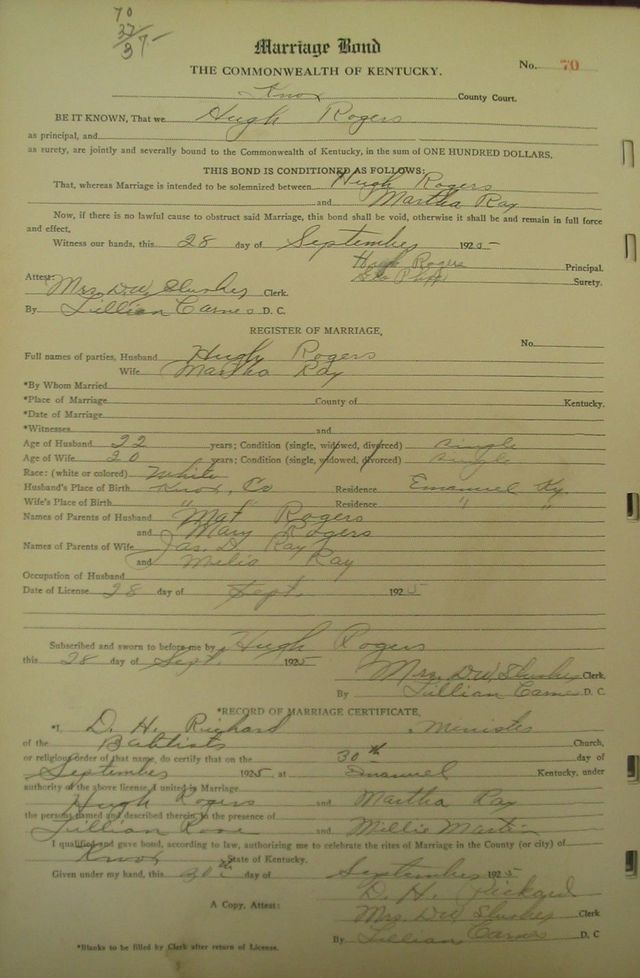 70
37
37-
Marriage Bond
No. 70
THE COMMONWEALTH OF KENTUCKY.
Knox County Court.
BE IT KNOWN, That we Hugh Rogers
as principal, and
as surety, are jointly and severally bound to the Commonwealth of Kentucky, in the sum of ONE HUNDRED DOLLARS.
THIS BOND IS CONDITIONED AS FOLLOWS:
That, whereas Marriage is intended to be solemnized between Hugh Rogers
and Martha Ray
Now, if there is no lawful cause to obstruct said Marriage, this bond shall be void, otherwise it shall be and remain in full force
and effect.
Witness our hands, this 28 day of September 1925
Hugh Rogers Principal.
Geo Surety.
Attest: Mrs. D.W. Slusher Clerk.
By Lillian Carnes D. C.
REGISTER OF MARRIAGE,
No.
Full names of parties, Husband Hugh Rogers
Wife Martha Ray
*By Whom Married
*Place of Marriage County of Kentucky.
*Date of Marriage
*Witnesses and
Age of Husband 22 years; Condition (single, widowed, divorced) Single
Age of Wife 20 years; Condition (single, widowed, divorced) Single
Race: (white or colored) White
Husband's Place of Birth Knox, Co Residence Emanuel Ky.
Wife's Place of Birth " " Residence " "
Names of Parents of Husband Mat Rogers
and Mary Rogers
Names of Parents of Wife Jas. D. Ray
and Melia Ray
Occupation of Husband
Date of License 28 day of Sept. 1925
Subscribed and sworn to before me by Hugh Rogers
this 28 day of Sept. 1925
Mrs. D.W. Slusher Clerk,
By Lillian Carnes D. C
*RECORD OF MARRIAGE CERTIFICATE,
*I, D. H. Richard, Minister
of the Baptists Church,
or religious order of that name, do certify that on the 30th day of
September 1925, at Emanuel Kentucky, under
authority of the above license I united in Marriage
Hugh Rogers and Martha Ray
the persons named and described therein, in the presence of
Lillian Rose and Millie Martin
I qualified and gave bond, according to law, authorizing me to celebrate the rites of Marriage in the County (or city) of
Knox State of Kentucky.
Given under my hand, this 30th day of September 1925
D. H. Rickard
A Copy, Attest: Mrs. D.W. Slusher Clerk
By Lillian Carnes D. C
*Blanks to be filled by Clerk after return of License.